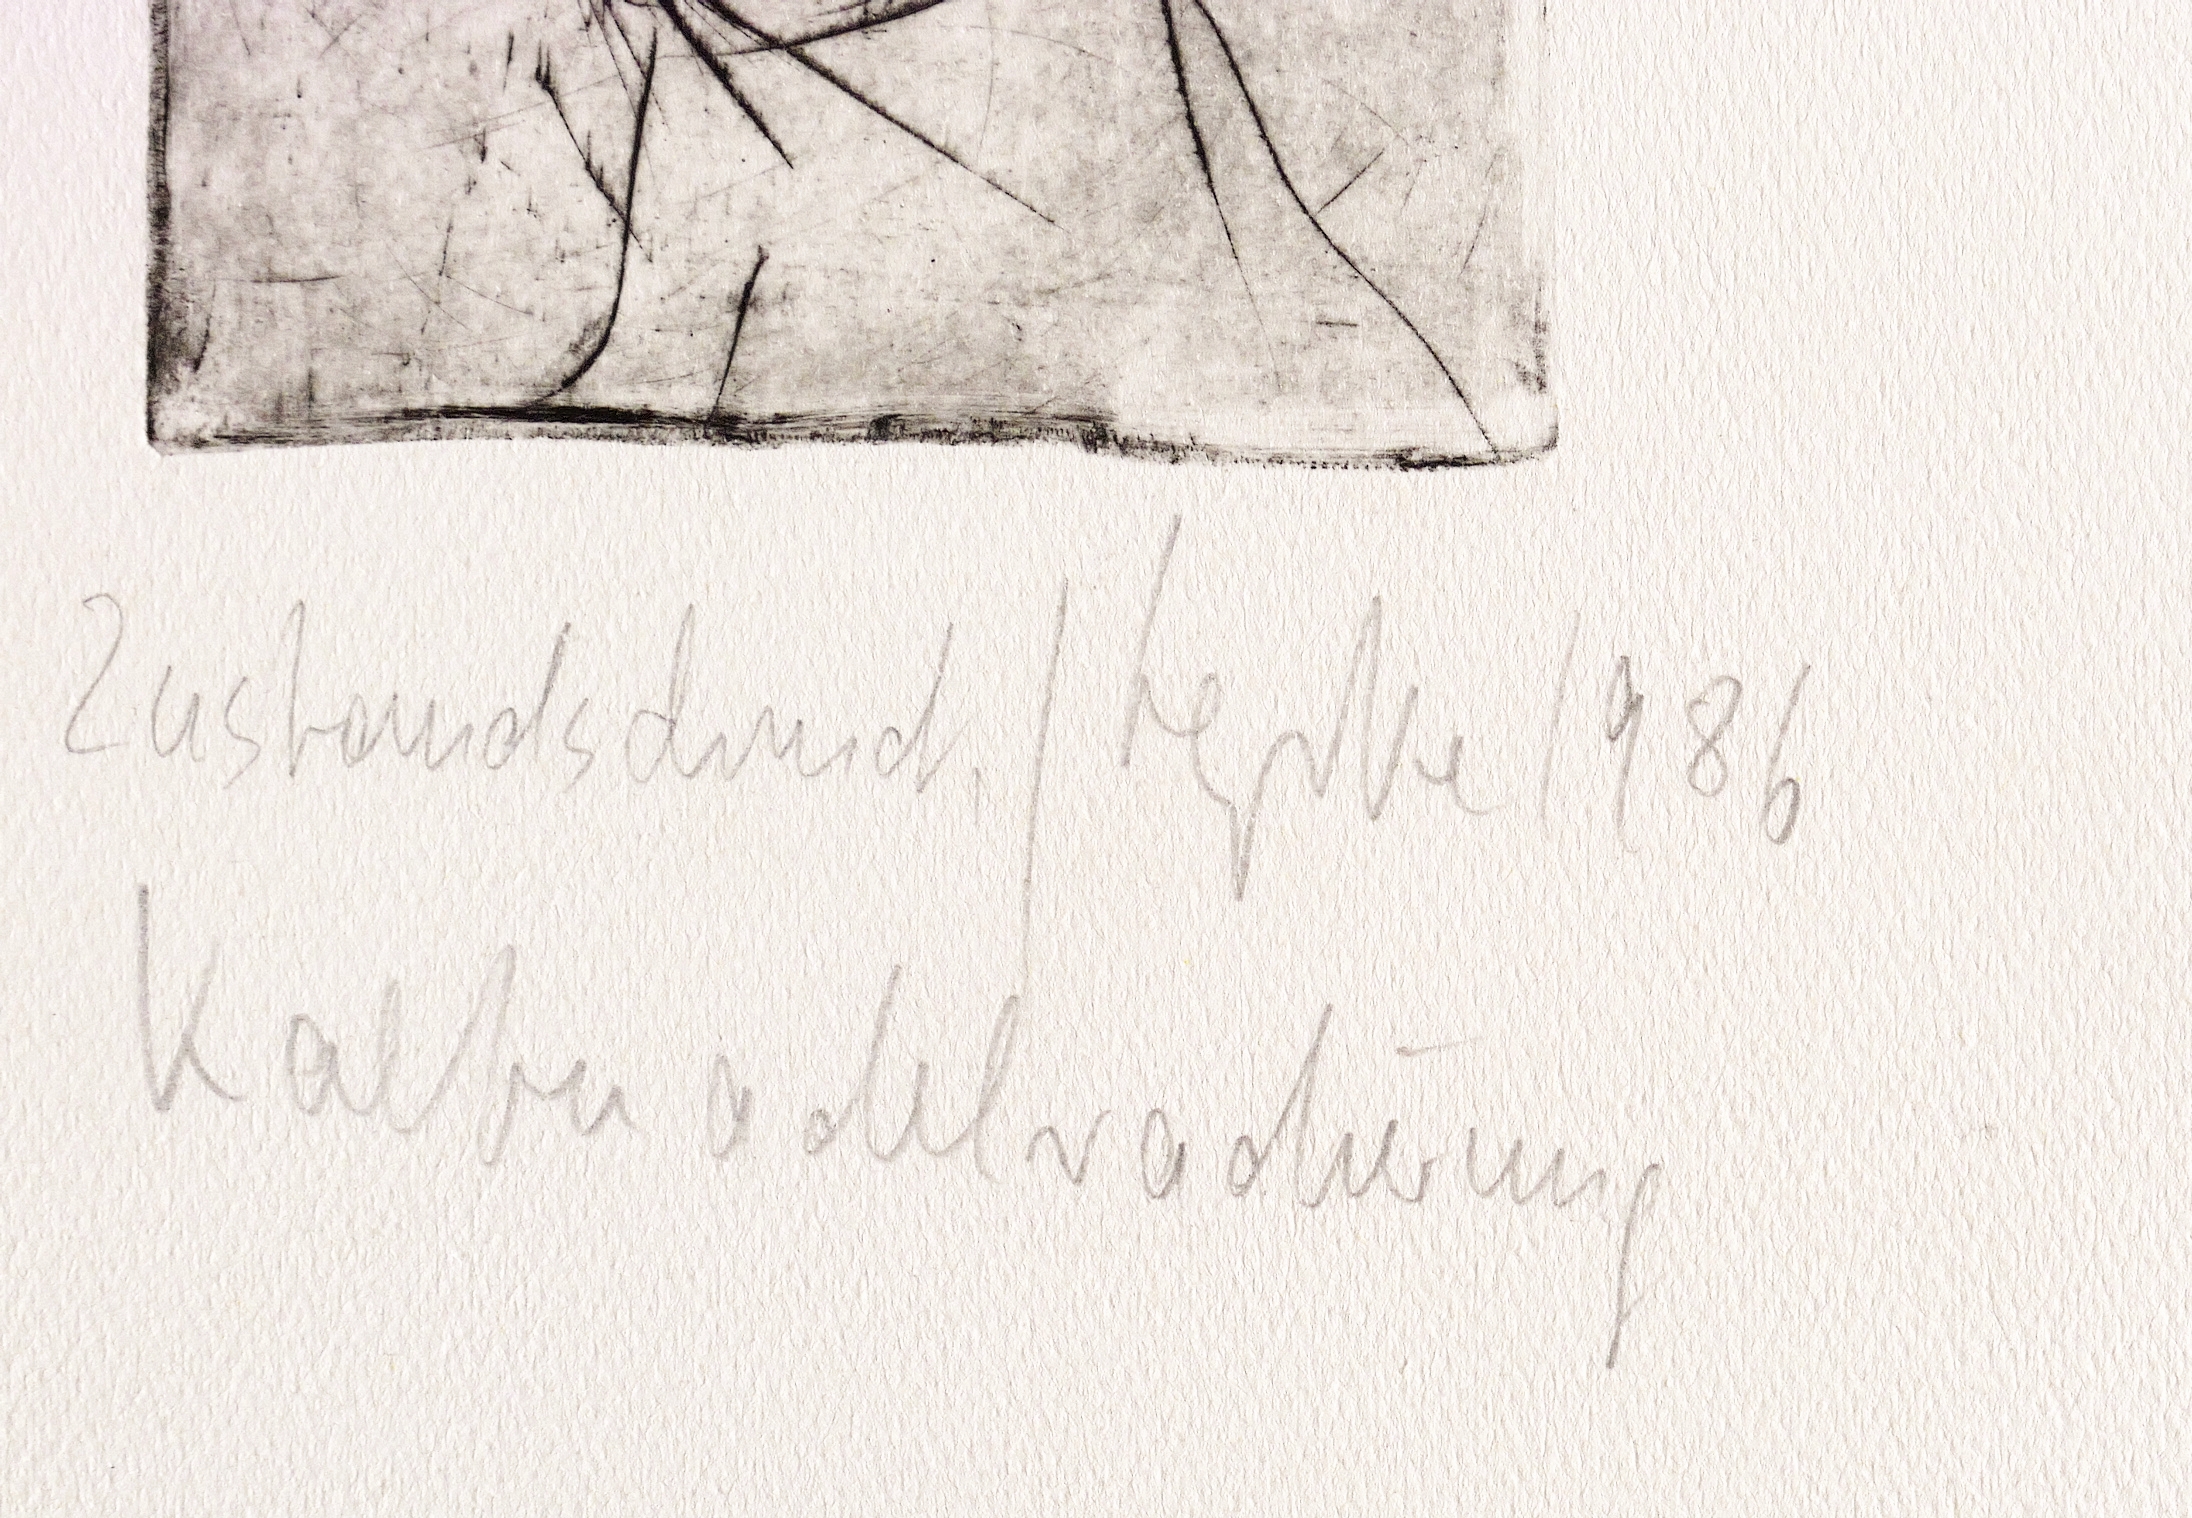 Zustandsdruck, 1986
Kaltnadelradierung